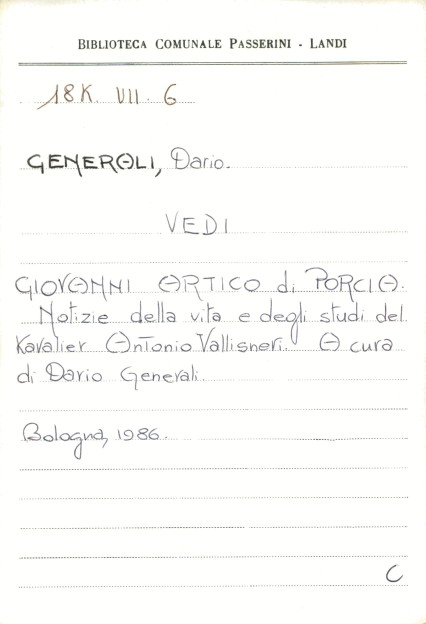 BIBLIOTECA COMUNALE PASSERINI - LANDI
18K. VII. 6
GENERALI, Dario.
VEDI
GIOVANNI ARTICO di PORCIA.
Notizie della vita e degli studi del
Kavalier Antonio Vallisneri. A cura
di Dario Generali.
Bologna, 1986.
C